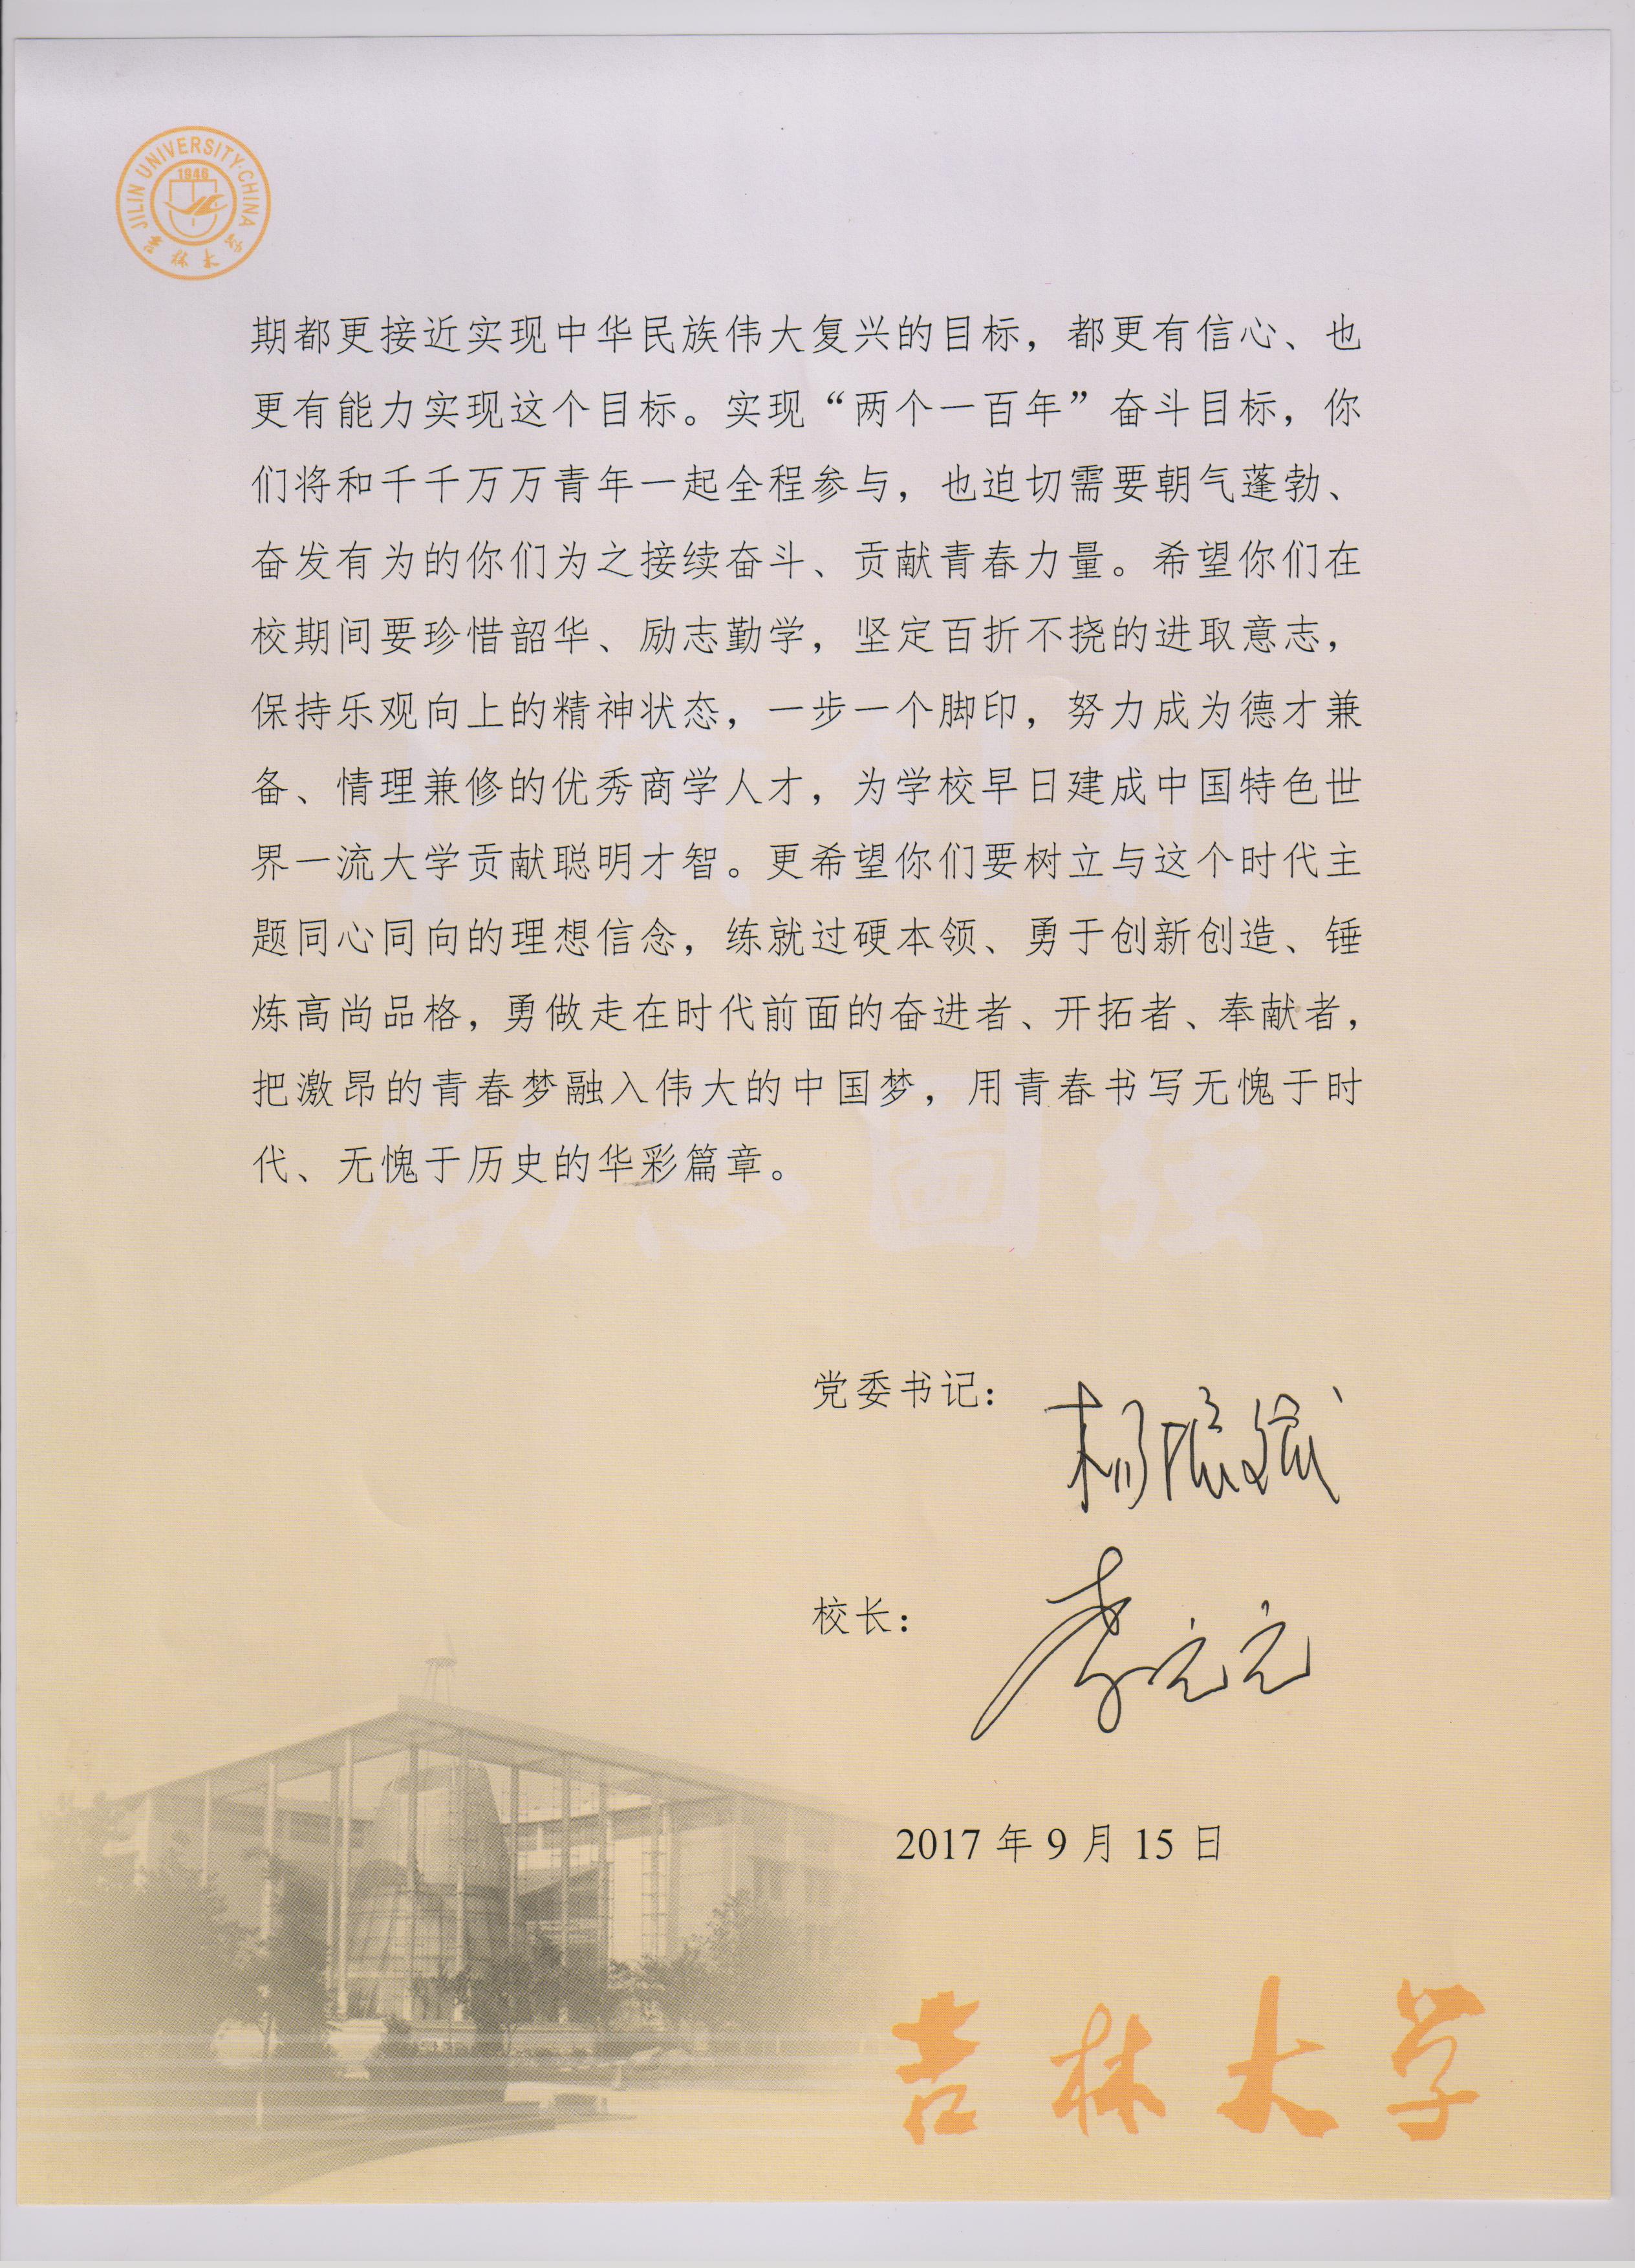 JILIN UNIVERSITY·CHINA
1946
吉林大学
期都更接近实现中华民族伟大复兴的目标，都更有信心、也
更有能力实现这个目标。实现“两个一百年”奋斗目标，你
们将和千千万万青年一起全程参与，也迫切需要朝气蓬勃、
奋发有为的你们为之接续奋斗、贡献青春力量。希望你们在
校期间要珍惜韶华、励志勤学，坚定百折不挠的进取意志，
保持乐观向上的精神状态，一步一个脚印，努力成为德才兼
备、情理兼修的优秀商学人才，为学校早日建成中国特色世
界一流大学贡献聪明才智。更希望你们要树立与这个时代主
题同心同向的理想信念，练就过硬本领、勇于创新创造、锤
炼高尚品格，勇做走在时代前面的奋进者、开拓者、奉献者，
把激昂的青春梦融入伟大的中国梦，用青春书写无愧于时
代、无愧于历史的华彩篇章。
勵志圖强
党委书记：杨振斌
校长：李元元
2017 年 9 月 15 日
吉林大学